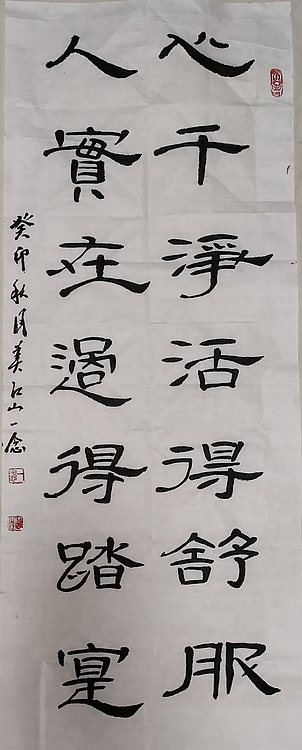 心干淨活得舒服
人實在過得踏寔
癸卯秋月美江山一念